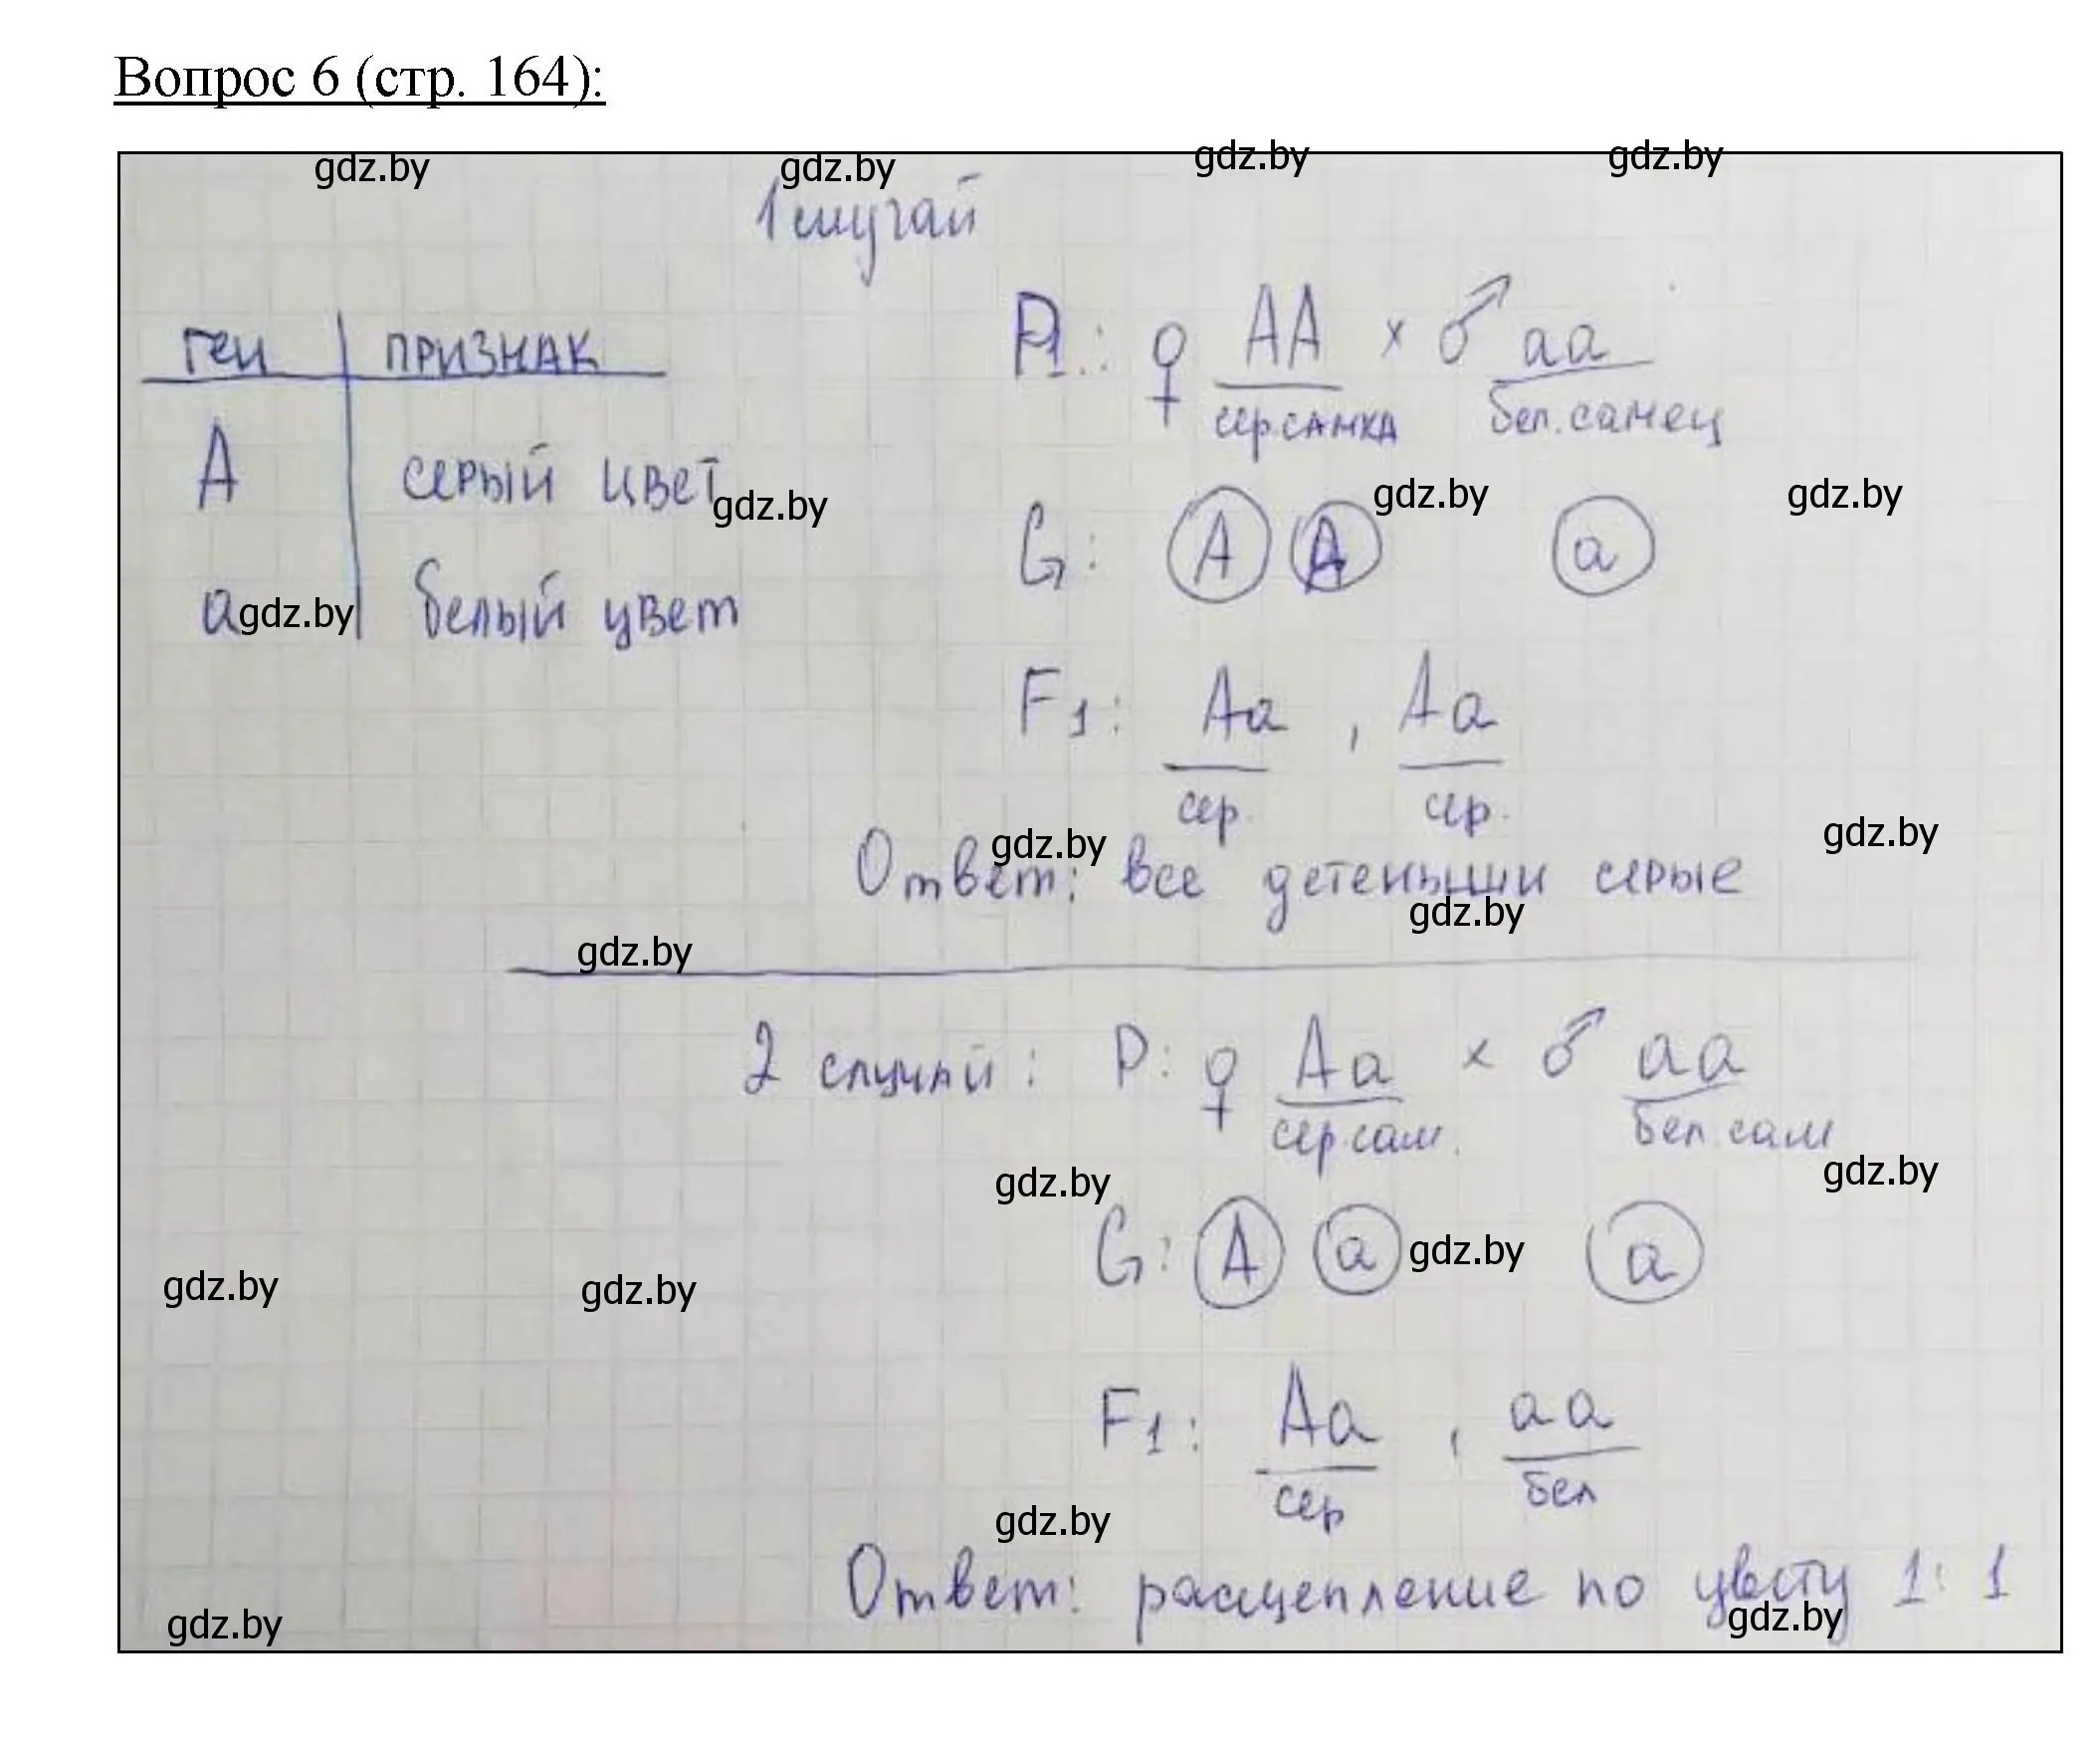 Вопрос 6 (стр. 164):
gdz.by gdz.by gdz.by gdz.by
1 случай
P1: ♀ AA × ♂ aa
ген признак
сер самка бел. самец
A серый цвет
gdz.by gdz.by gdz.by
G: A A a
a gdz.by белый цвет
F1: Aa , Aa
сер. сер.
gdz.by gdz.by
Ответ: все детеныши серые
gdz.by
gdz.by
2 случай: P: ♀ Aa × ♂ aa
сер сам. бел. сам
gdz.by gdz.by
G: A a gdz.by a
gdz.by gdz.by
F1: Aa , aa
сер бел
gdz.by
Ответ: расщепление по цвету 1:1
gdz.by gdz.by